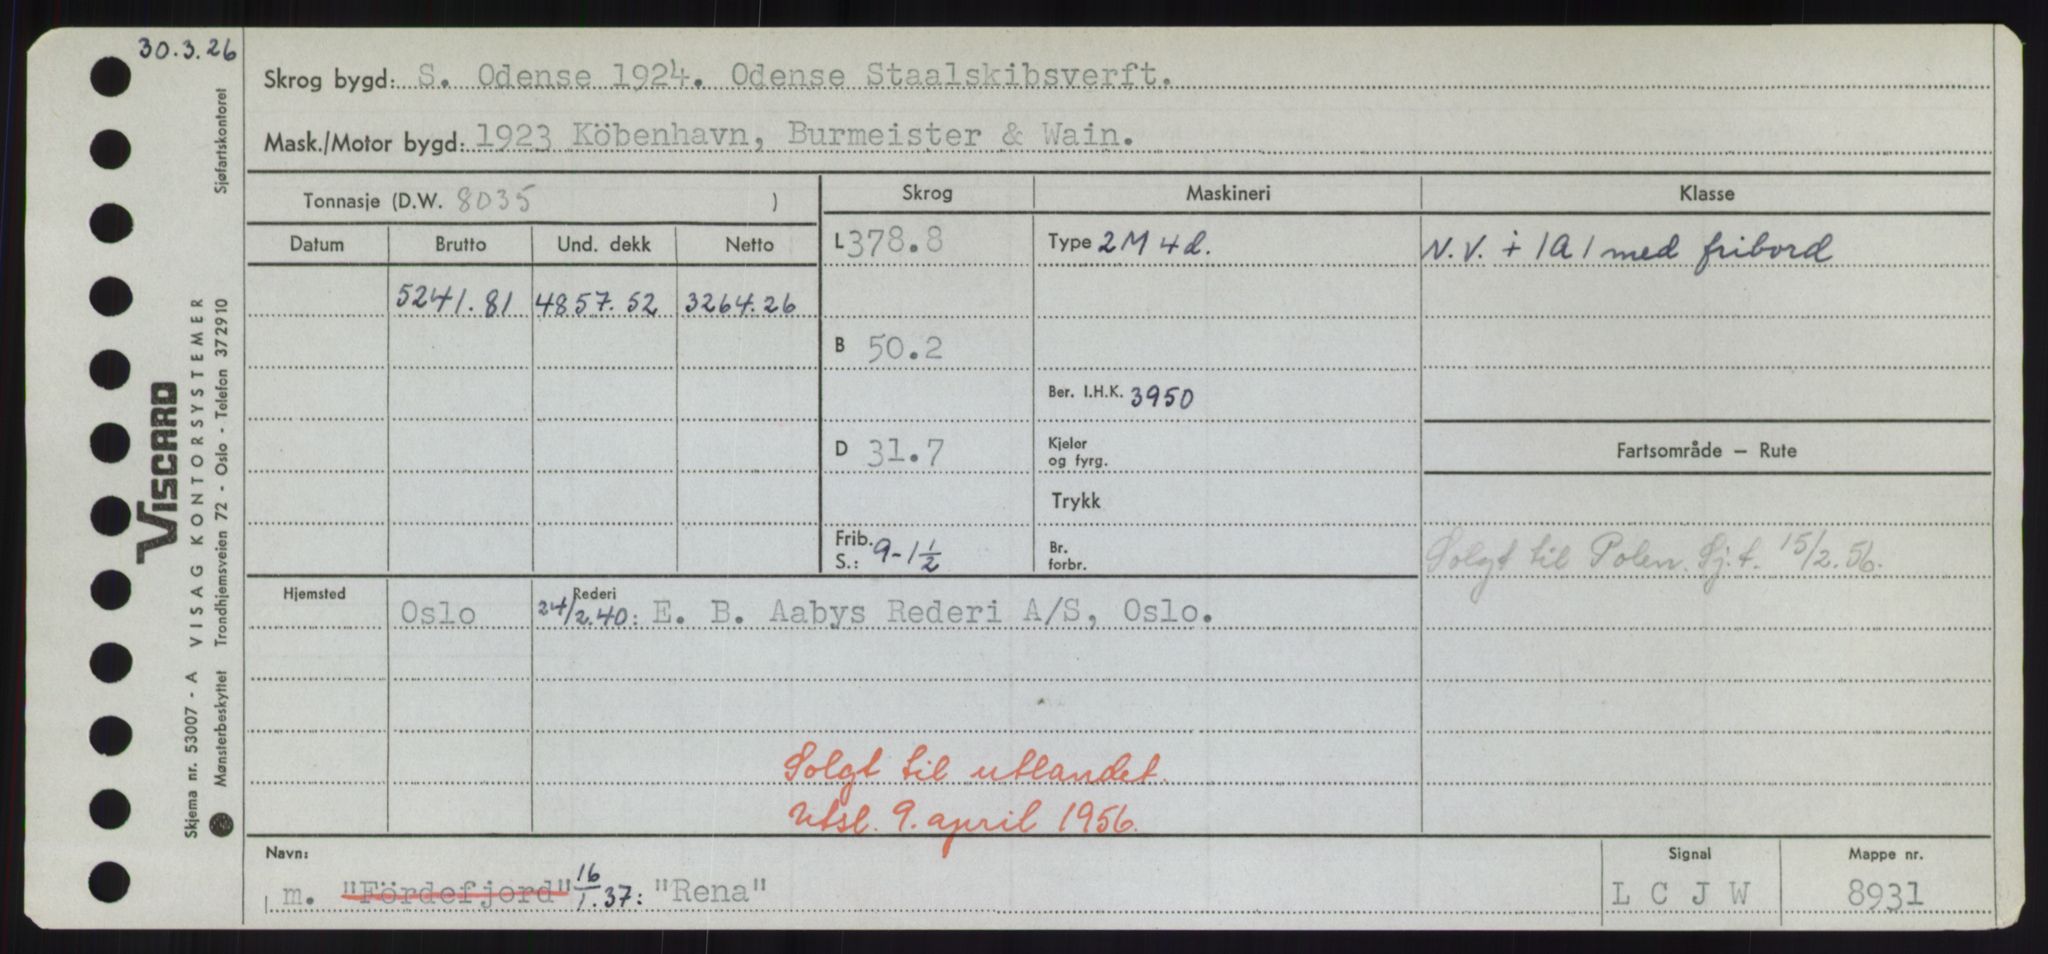 30.3.26
Skrog bygd: S. Odense 1924. Odense Staalskibsverft.
Mask./Motor bygd: 1923 Köbenhavn, Burmeister & Wain.
Tonnasje (D.W. 8035 )
Skrog
Maskineri
Klasse
Datum Brutto Und. dekk Netto
5241.81 4857.52 3264.26
L 378.8
B 50.2
D 31.7
Frib. S.: 9-1 1/2
Type 2 M 4 d.
Ber. I.H.K. 3950
Kjeler
og fyrg.
Trykk
Br.
forbr.
N.V. + 1A1 med fribord
Fartsområde – Rute
Solgt til Polen. Sj.t. 15/2.56.
Hjemsted
Rederi
Oslo 24/2.40: E. B. Aabys Rederi A/S, Oslo.
Solgt til utlandet.
Utsl. 9. april 1956.
Navn:
m. "Fördefjord" 16/1.37: "Rena"
Signal
L C J W
Mappe nr.
8931
VISCARD
Skjema nr. 53007 - A VISAG KONTORSYSTEMER
Mønsterbeskyttet Trondhjemsveien 72 - Oslo - Telefon 372910 Sjøfartskontoret